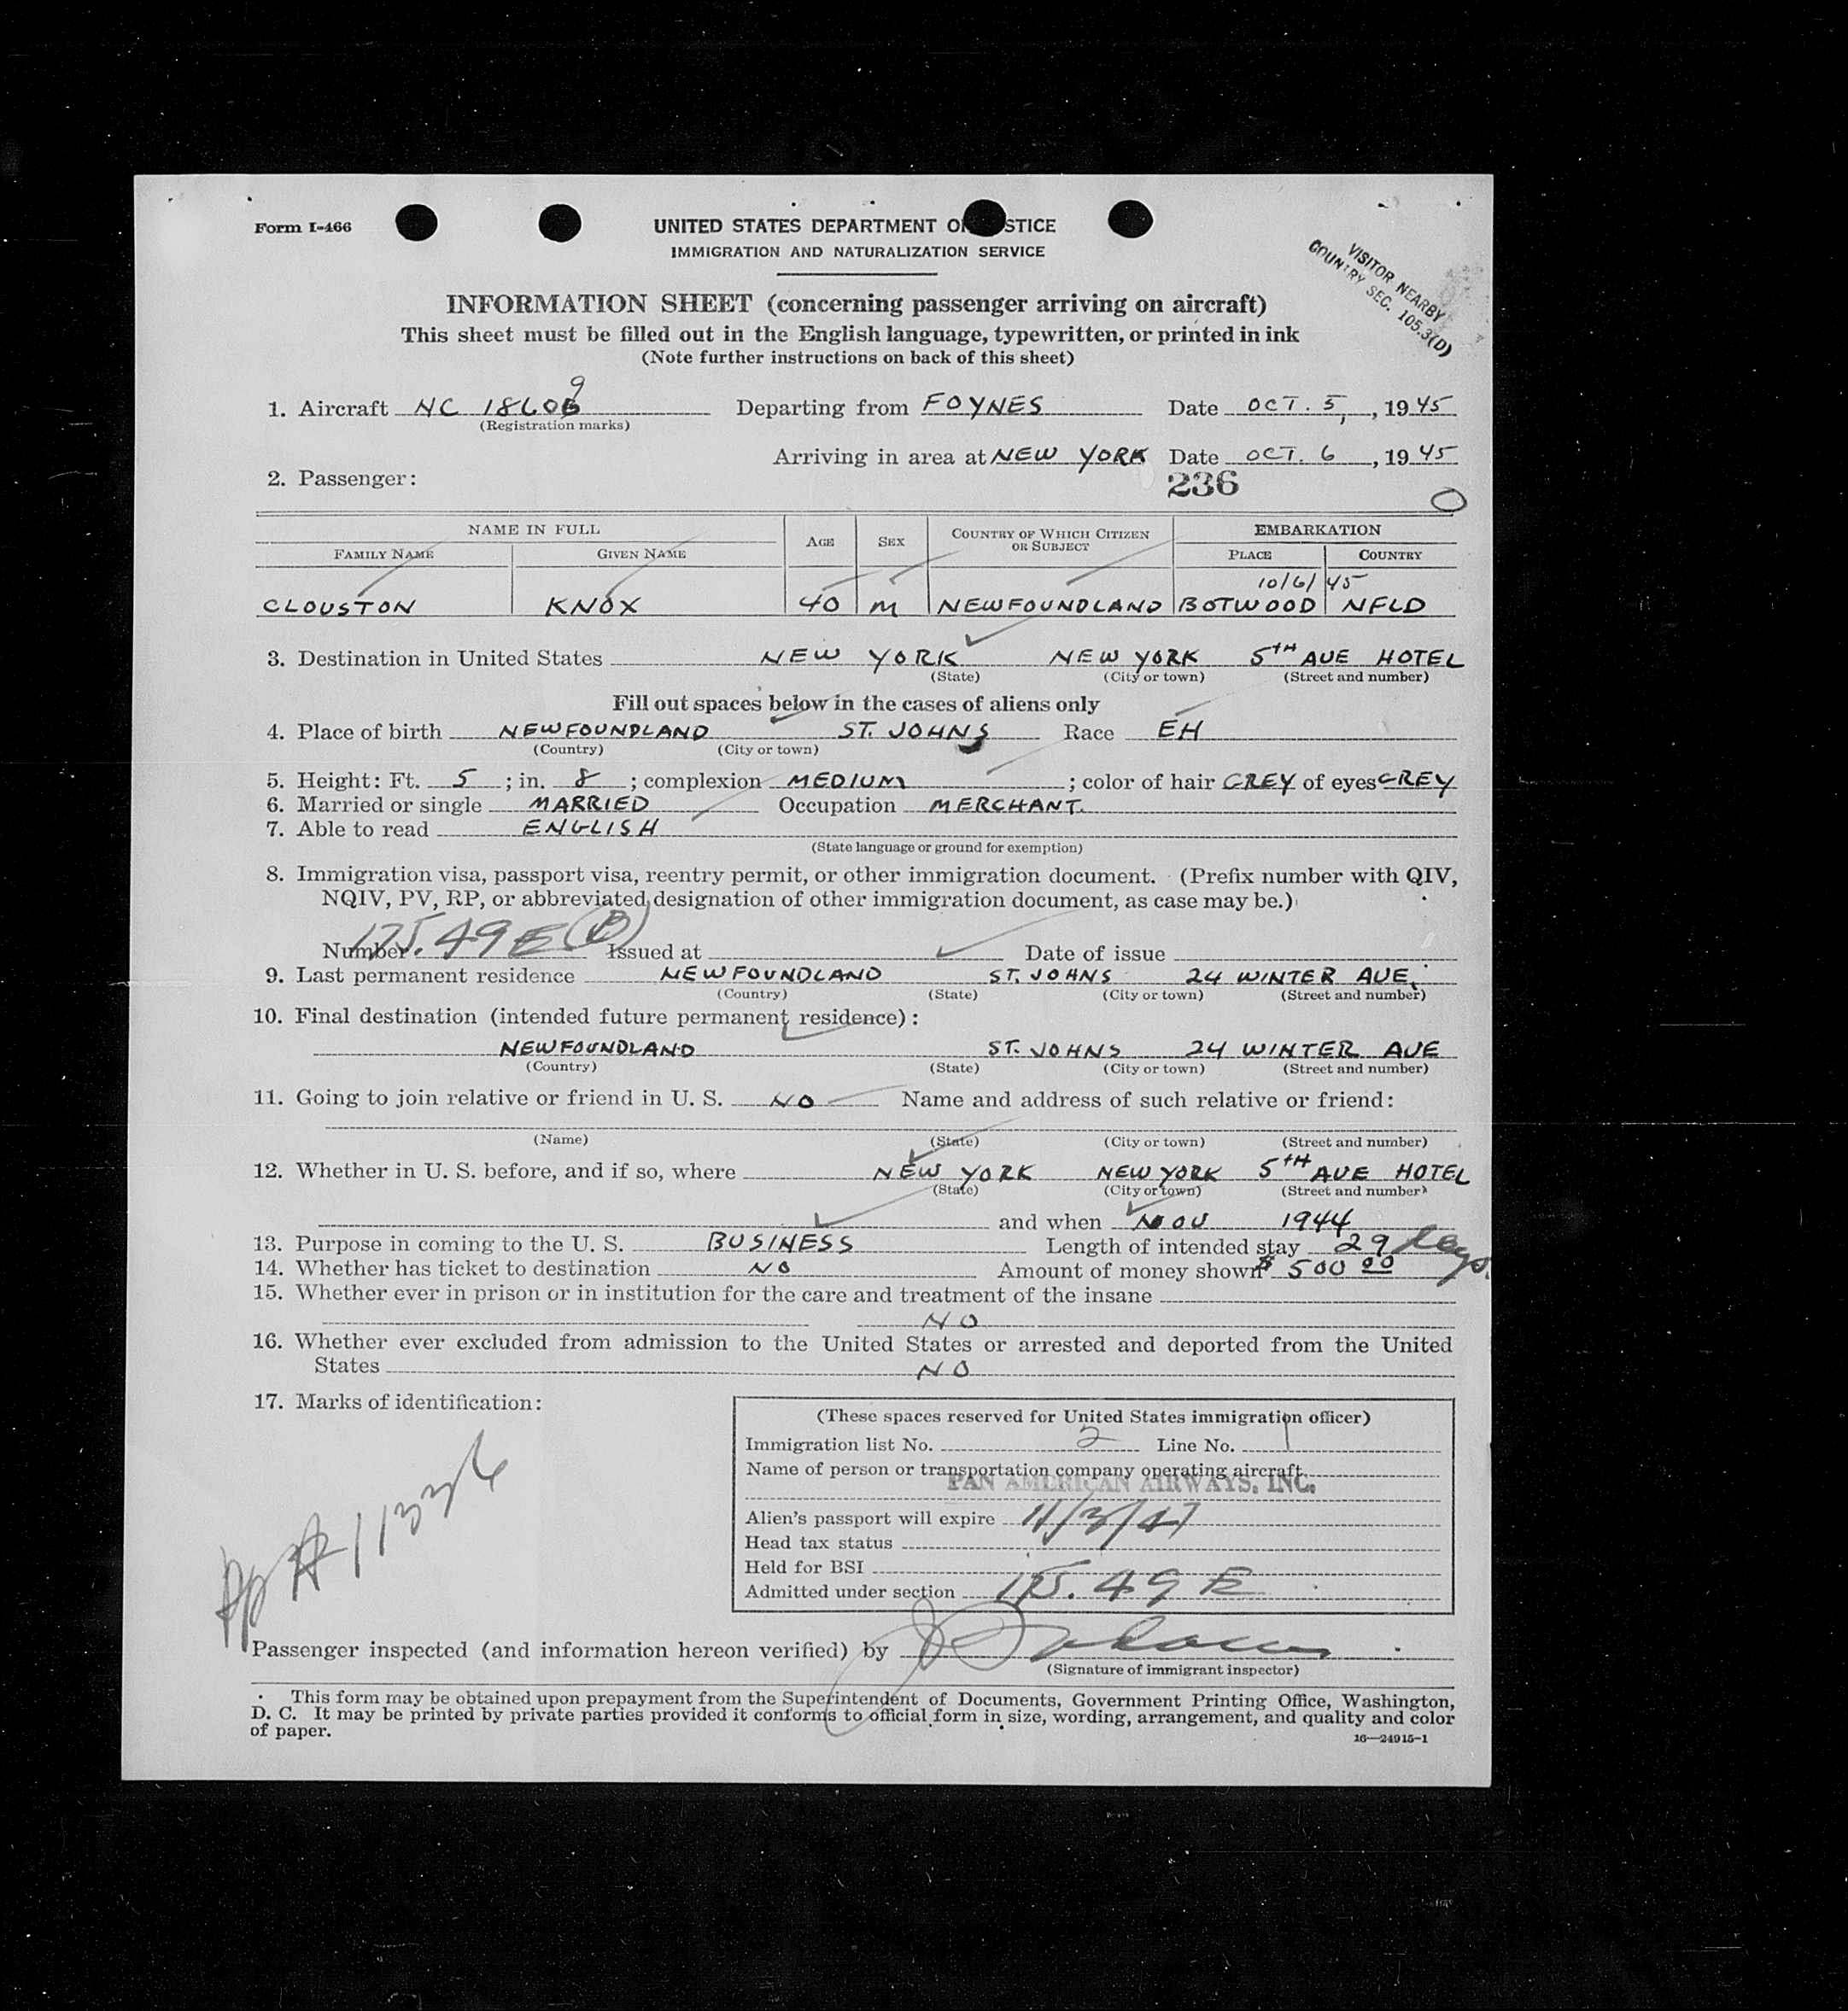 Form I-466
UNITED STATES DEPARTMENT OF STICE
IMMIGRATION AND NATURALIZATION SERVICE
VISITOR NEARBY
COUNTRY SEC. 105.3(D)
INFORMATION SHEET (concerning passenger arriving on aircraft)
This sheet must be filled out in the English language, typewritten, or printed in ink
(Note further instructions on back of this sheet)
9
1. Aircraft NC 1860 Departing from FOYNES Date OCT. 5, , 1945
(Registration marks)
Arriving in area at NEW YORK Date OCT. 6 , 1945
2. Passenger: 236
O
NAME IN FULL AGE SEX COUNTRY OF WHICH CITIZEN OR SUBJECT EMBARKATION
FAMILY NAME GIVEN NAME PLACE COUNTRY
10/6/45
CLOUSTON KNOX 40 M NEWFOUNDLAND BOTWOOD NFLD
3. Destination in United States NEW YORK NEW YORK 5TH AVE HOTEL
(State) (City or town) (Street and number)
Fill out spaces below in the cases of aliens only
4. Place of birth NEWFOUNDLAND ST. JOHNS Race EH
(Country) (City or town)
5. Height: Ft. 5 ; in. 8 ; complexion MEDIUM ; color of hair GREY of eyes GREY
6. Married or single MARRIED Occupation MERCHANT.
7. Able to read ENGLISH
(State language or ground for exemption)
8. Immigration visa, passport visa, reentry permit, or other immigration document. (Prefix number with QIV,
NQIV, PV, RP, or abbreviated designation of other immigration document, as case may be.)
Number 175.49E (B) Issued at Date of issue
9. Last permanent residence NEWFOUNDLAND ST. JOHNS 24 WINTER AVE.
(Country) (State) (City or town) (Street and number)
10. Final destination (intended future permanent residence):
NEWFOUNDLAND ST. JOHNS 24 WINTER AVE
(Country) (State) (City or town) (Street and number)
11. Going to join relative or friend in U. S. NO Name and address of such relative or friend:
(Name) (State) (City or town) (Street and number)
12. Whether in U. S. before, and if so, where NEW YORK NEW YORK 5TH AVE HOTEL
(State) (City or town) (Street and number)
and when NOV 1944
13. Purpose in coming to the U. S. BUSINESS Length of intended stay 29 days
14. Whether has ticket to destination NO Amount of money shown $ 500 00
15. Whether ever in prison or in institution for the care and treatment of the insane
NO
16. Whether ever excluded from admission to the United States or arrested and deported from the United
States NO
17. Marks of identification:
(These spaces reserved for United States immigration officer)
Immigration list No. 2 Line No. 1
Name of person or transportation company operating aircraft
PAN AMERICAN AIRWAYS, INC.
Alien's passport will expire 11/3/47
Head tax status
Held for BSI
Admitted under section 175.49E
pp # 11336
Passenger inspected (and information hereon verified) by
(Signature of immigrant inspector)
This form may be obtained upon prepayment from the Superintendent of Documents, Government Printing Office, Washington,
D. C. It may be printed by private parties provided it conforms to official form in size, wording, arrangement, and quality and color
of paper.
16—24915-1